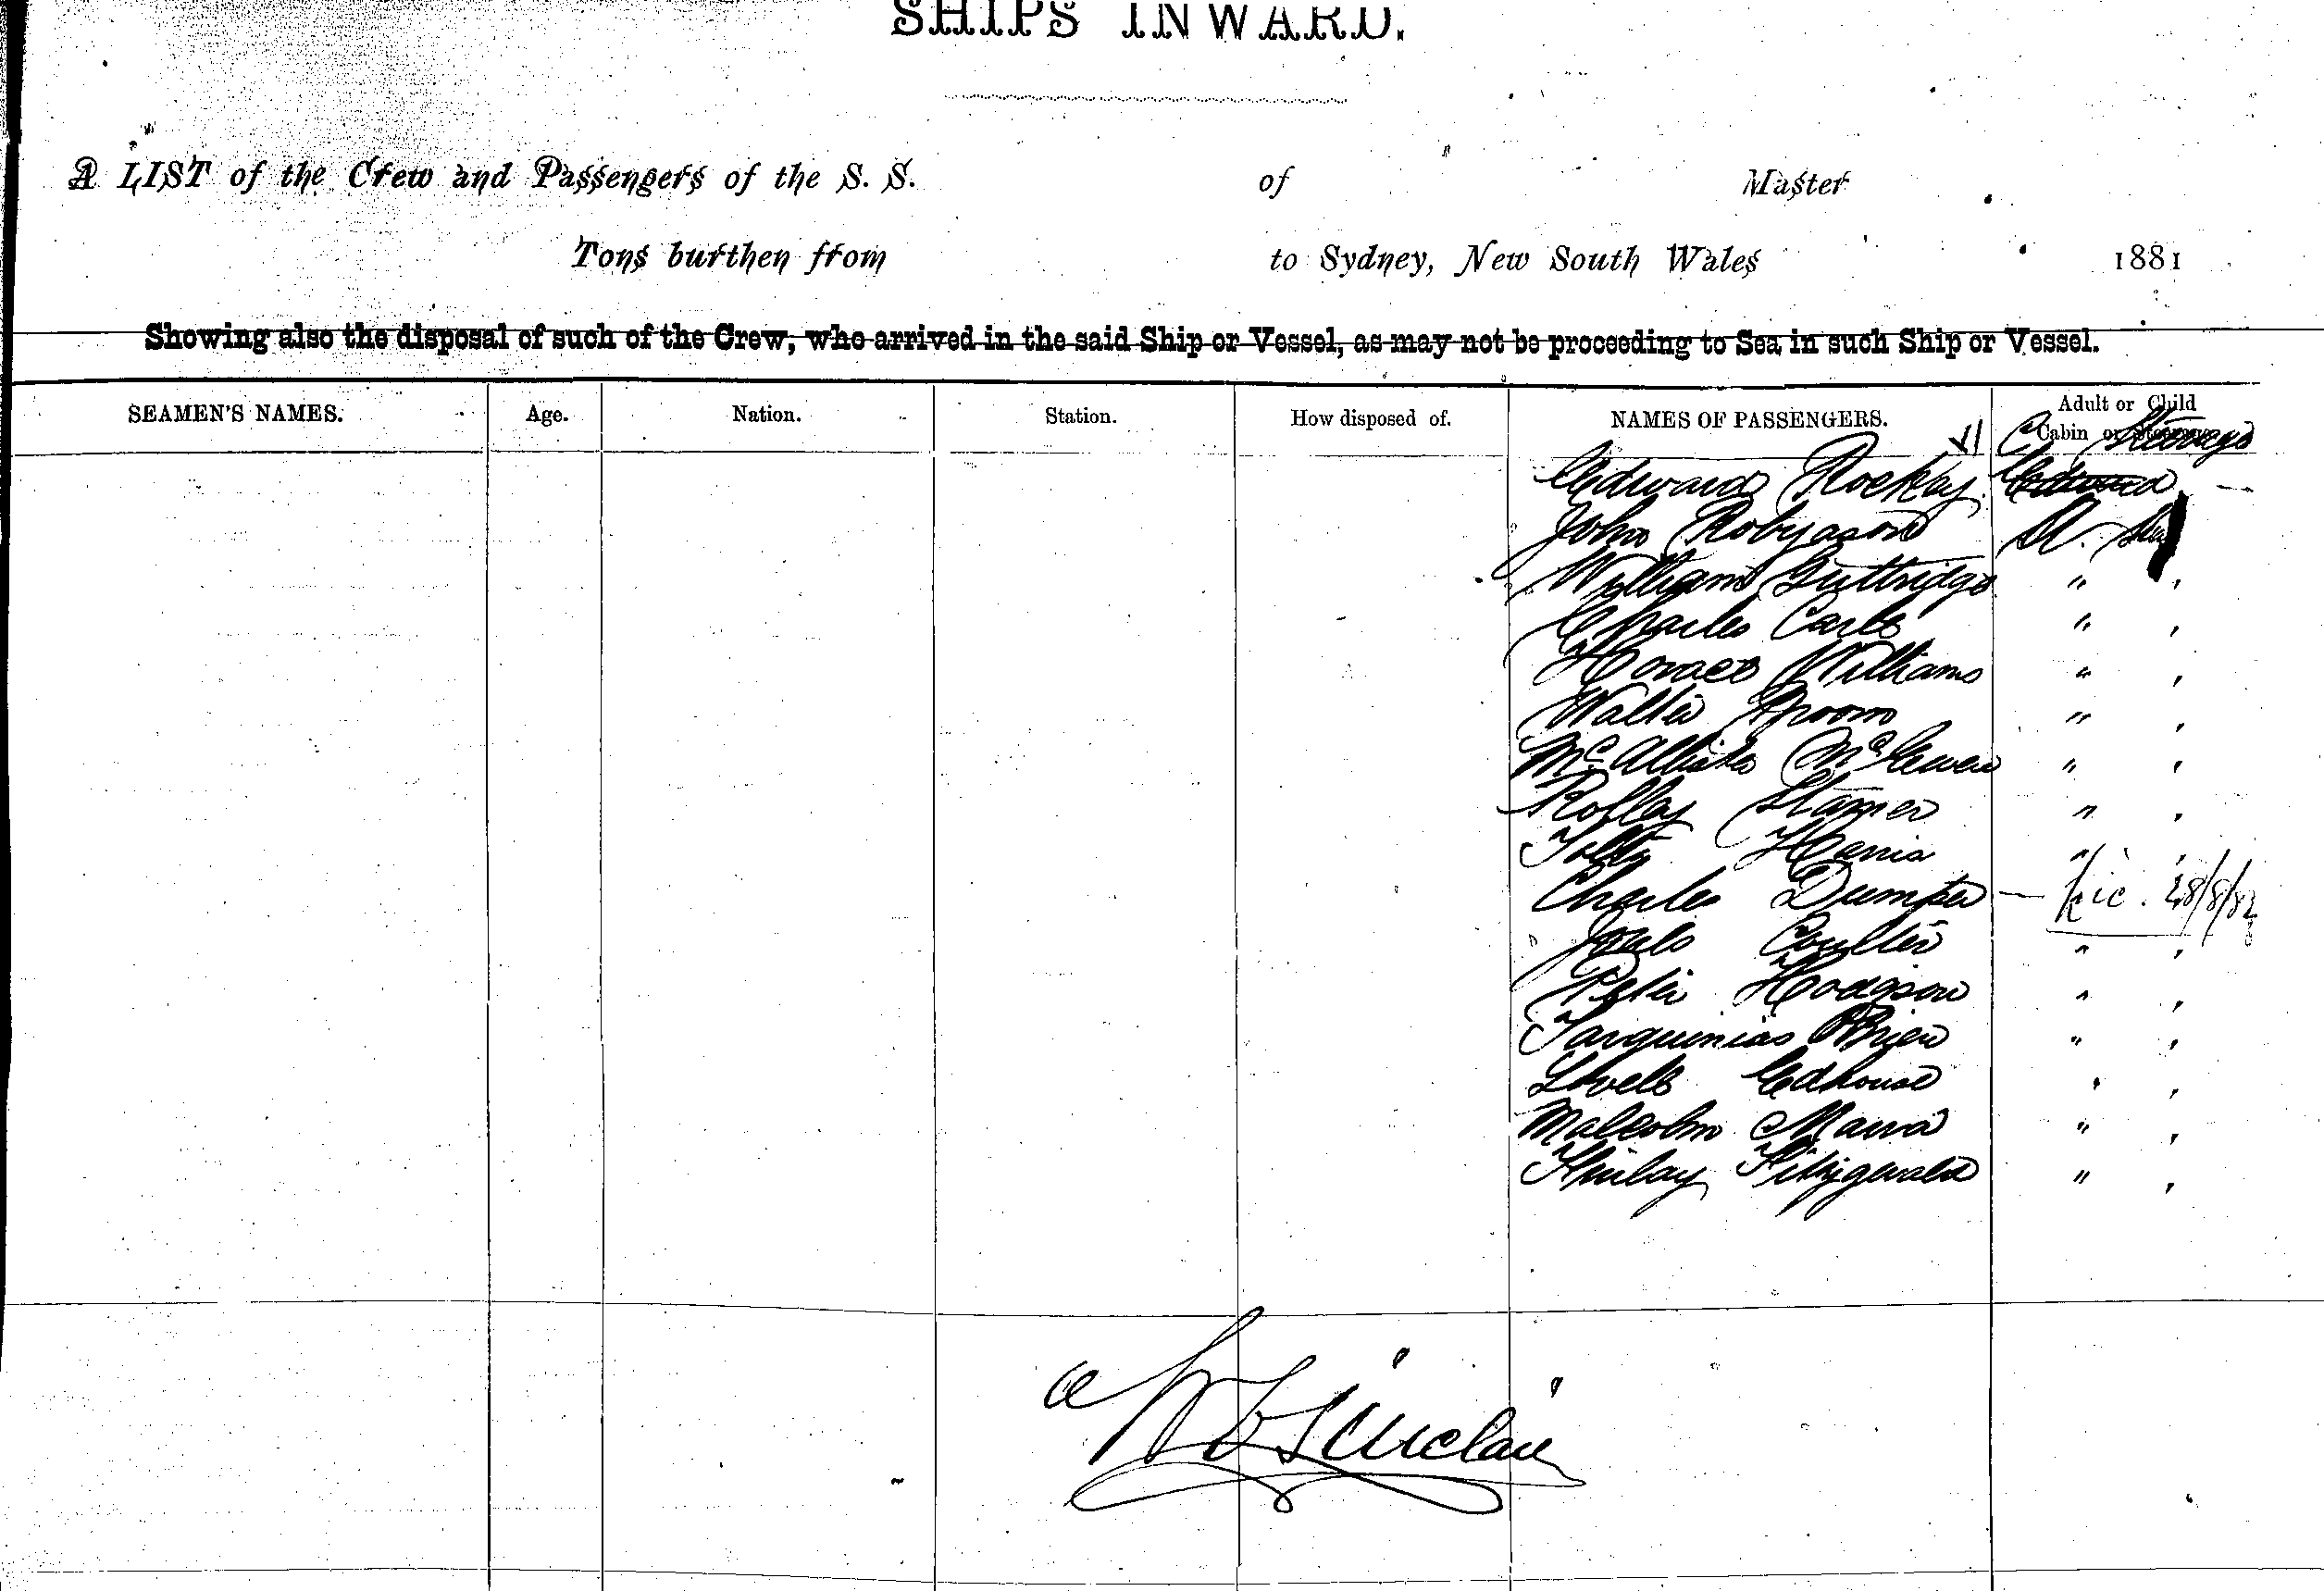 SHIPS INWARD.
A LIST of the Crew and Passengers of the S. S. of Master
Tons burthen from to Sydney, New South Wales 1881
Showing also the disposal of such of the Crew, who arrived in the said Ship or Vessel, as may not be proceeding to Sea in such Ship or Vessel.
SEAMEN'S NAMES. Age. Nation. Station. How disposed of. NAMES OF PASSENGERS. Adult or Child
Cabin or Steerage
Edward
John A.
William Guttridge " "
Charles " "
Horace Williams " "
Walter Groom " "
McAllister McEwen " "
" "
Harris " "
Charles Dumper — 28/8/82
Coulter " "
Peter Hodgson " "
Tarquinias OBrien " "
Lovell Edhouse " "
Malcolm " "
Finlay Fitzgerald " "
Sinclair